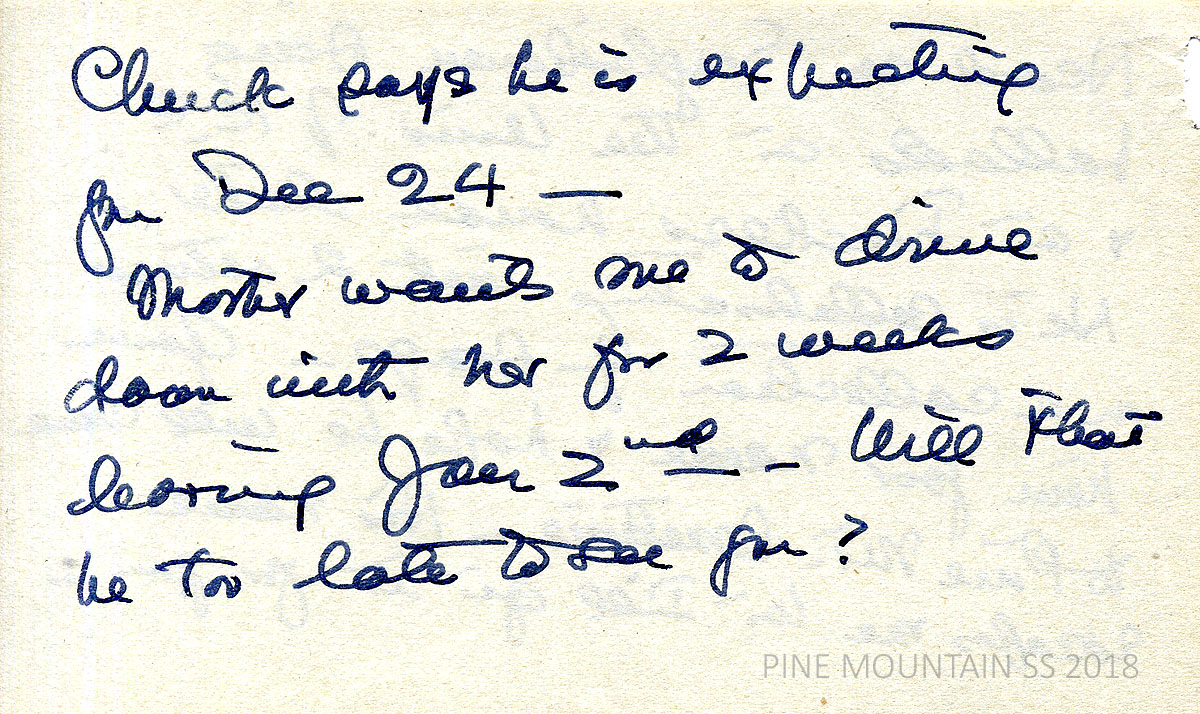 Chuck says he is expecting
you Dec 24 —
Mother wants me to drive
down with her for 2 weeks
leaving Jan 2nd - Will that
be too late to see you?
PINE MOUNTAIN SS 2018